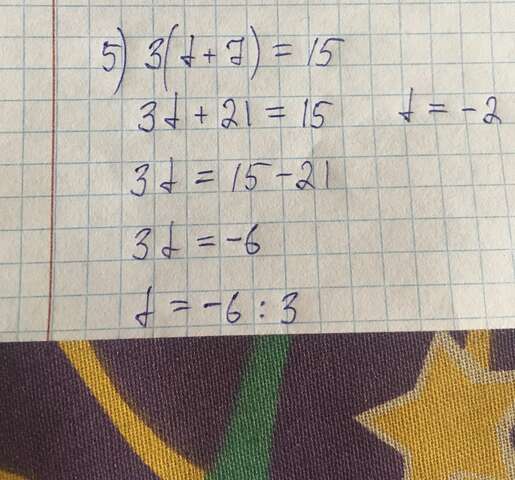 5) 3(t + 7) = 15
3t + 21 = 15
3t = 15 - 21
3t = -6
t = -6 : 3
t = -2